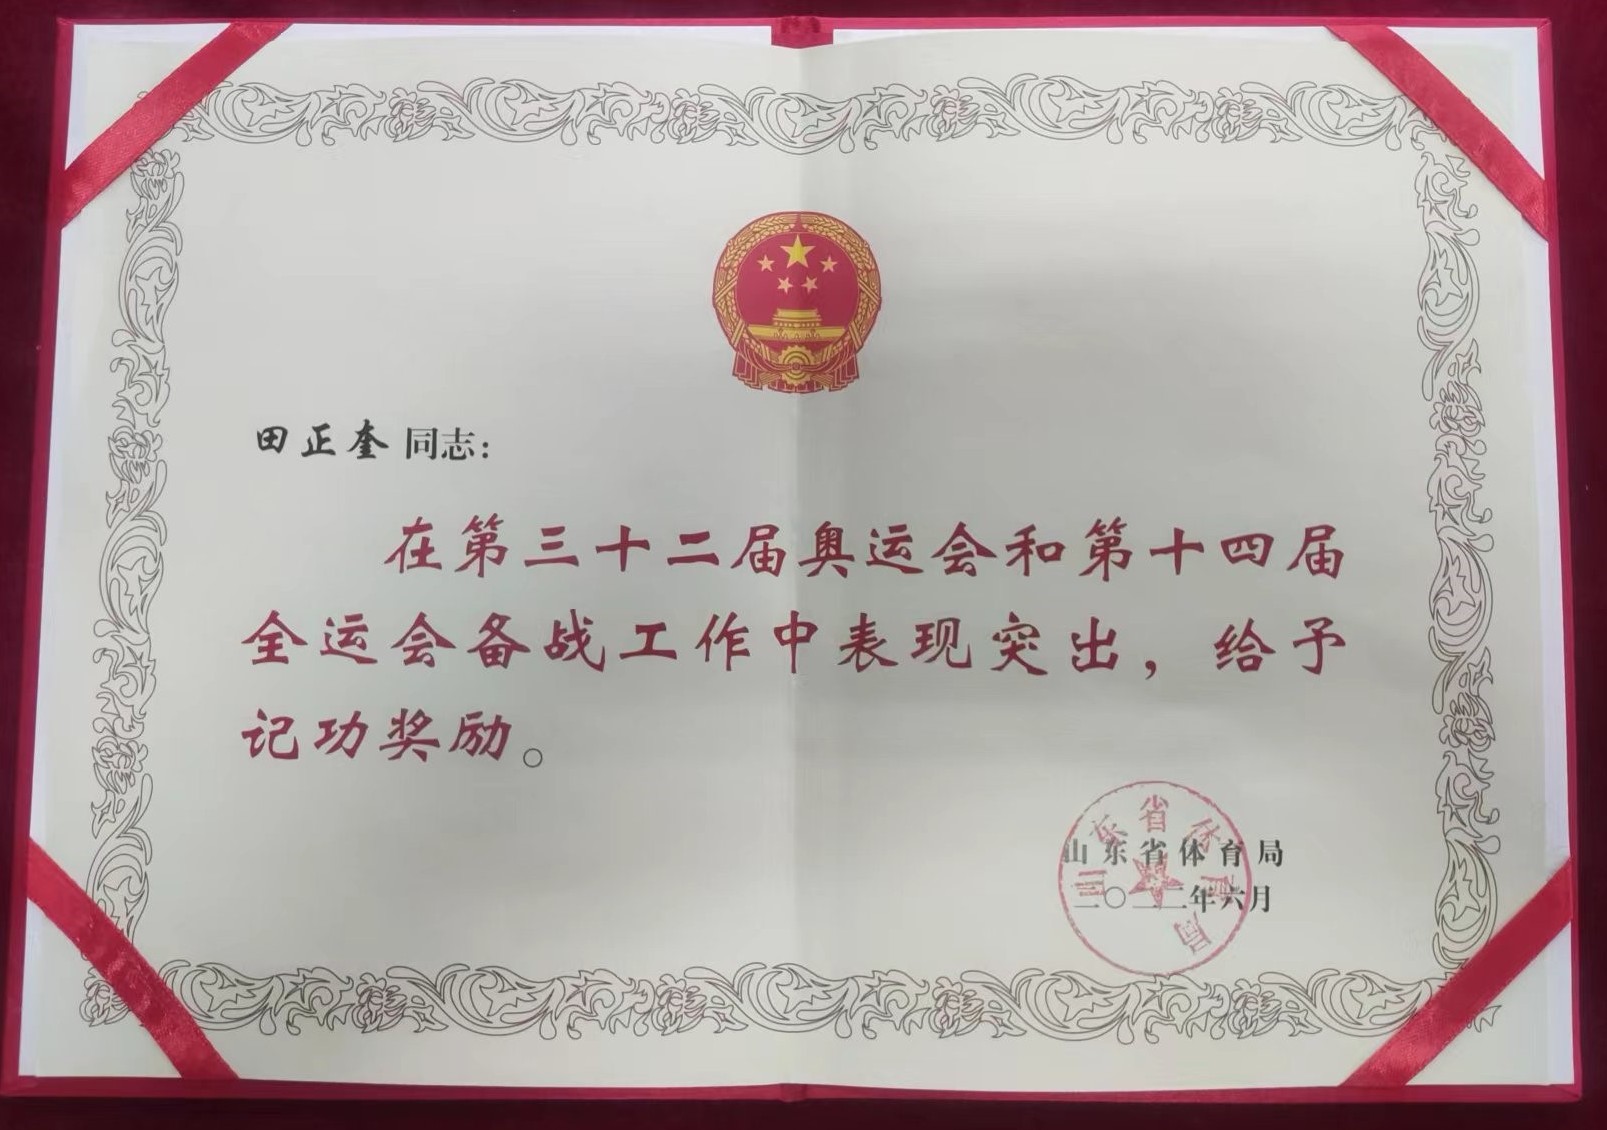 田正奎 同志：
在第三十二届奥运会和第十四届
全运会备战工作中表现突出，给予
记功奖励。
山东省体育局
二〇二二年六月
山东省体育局